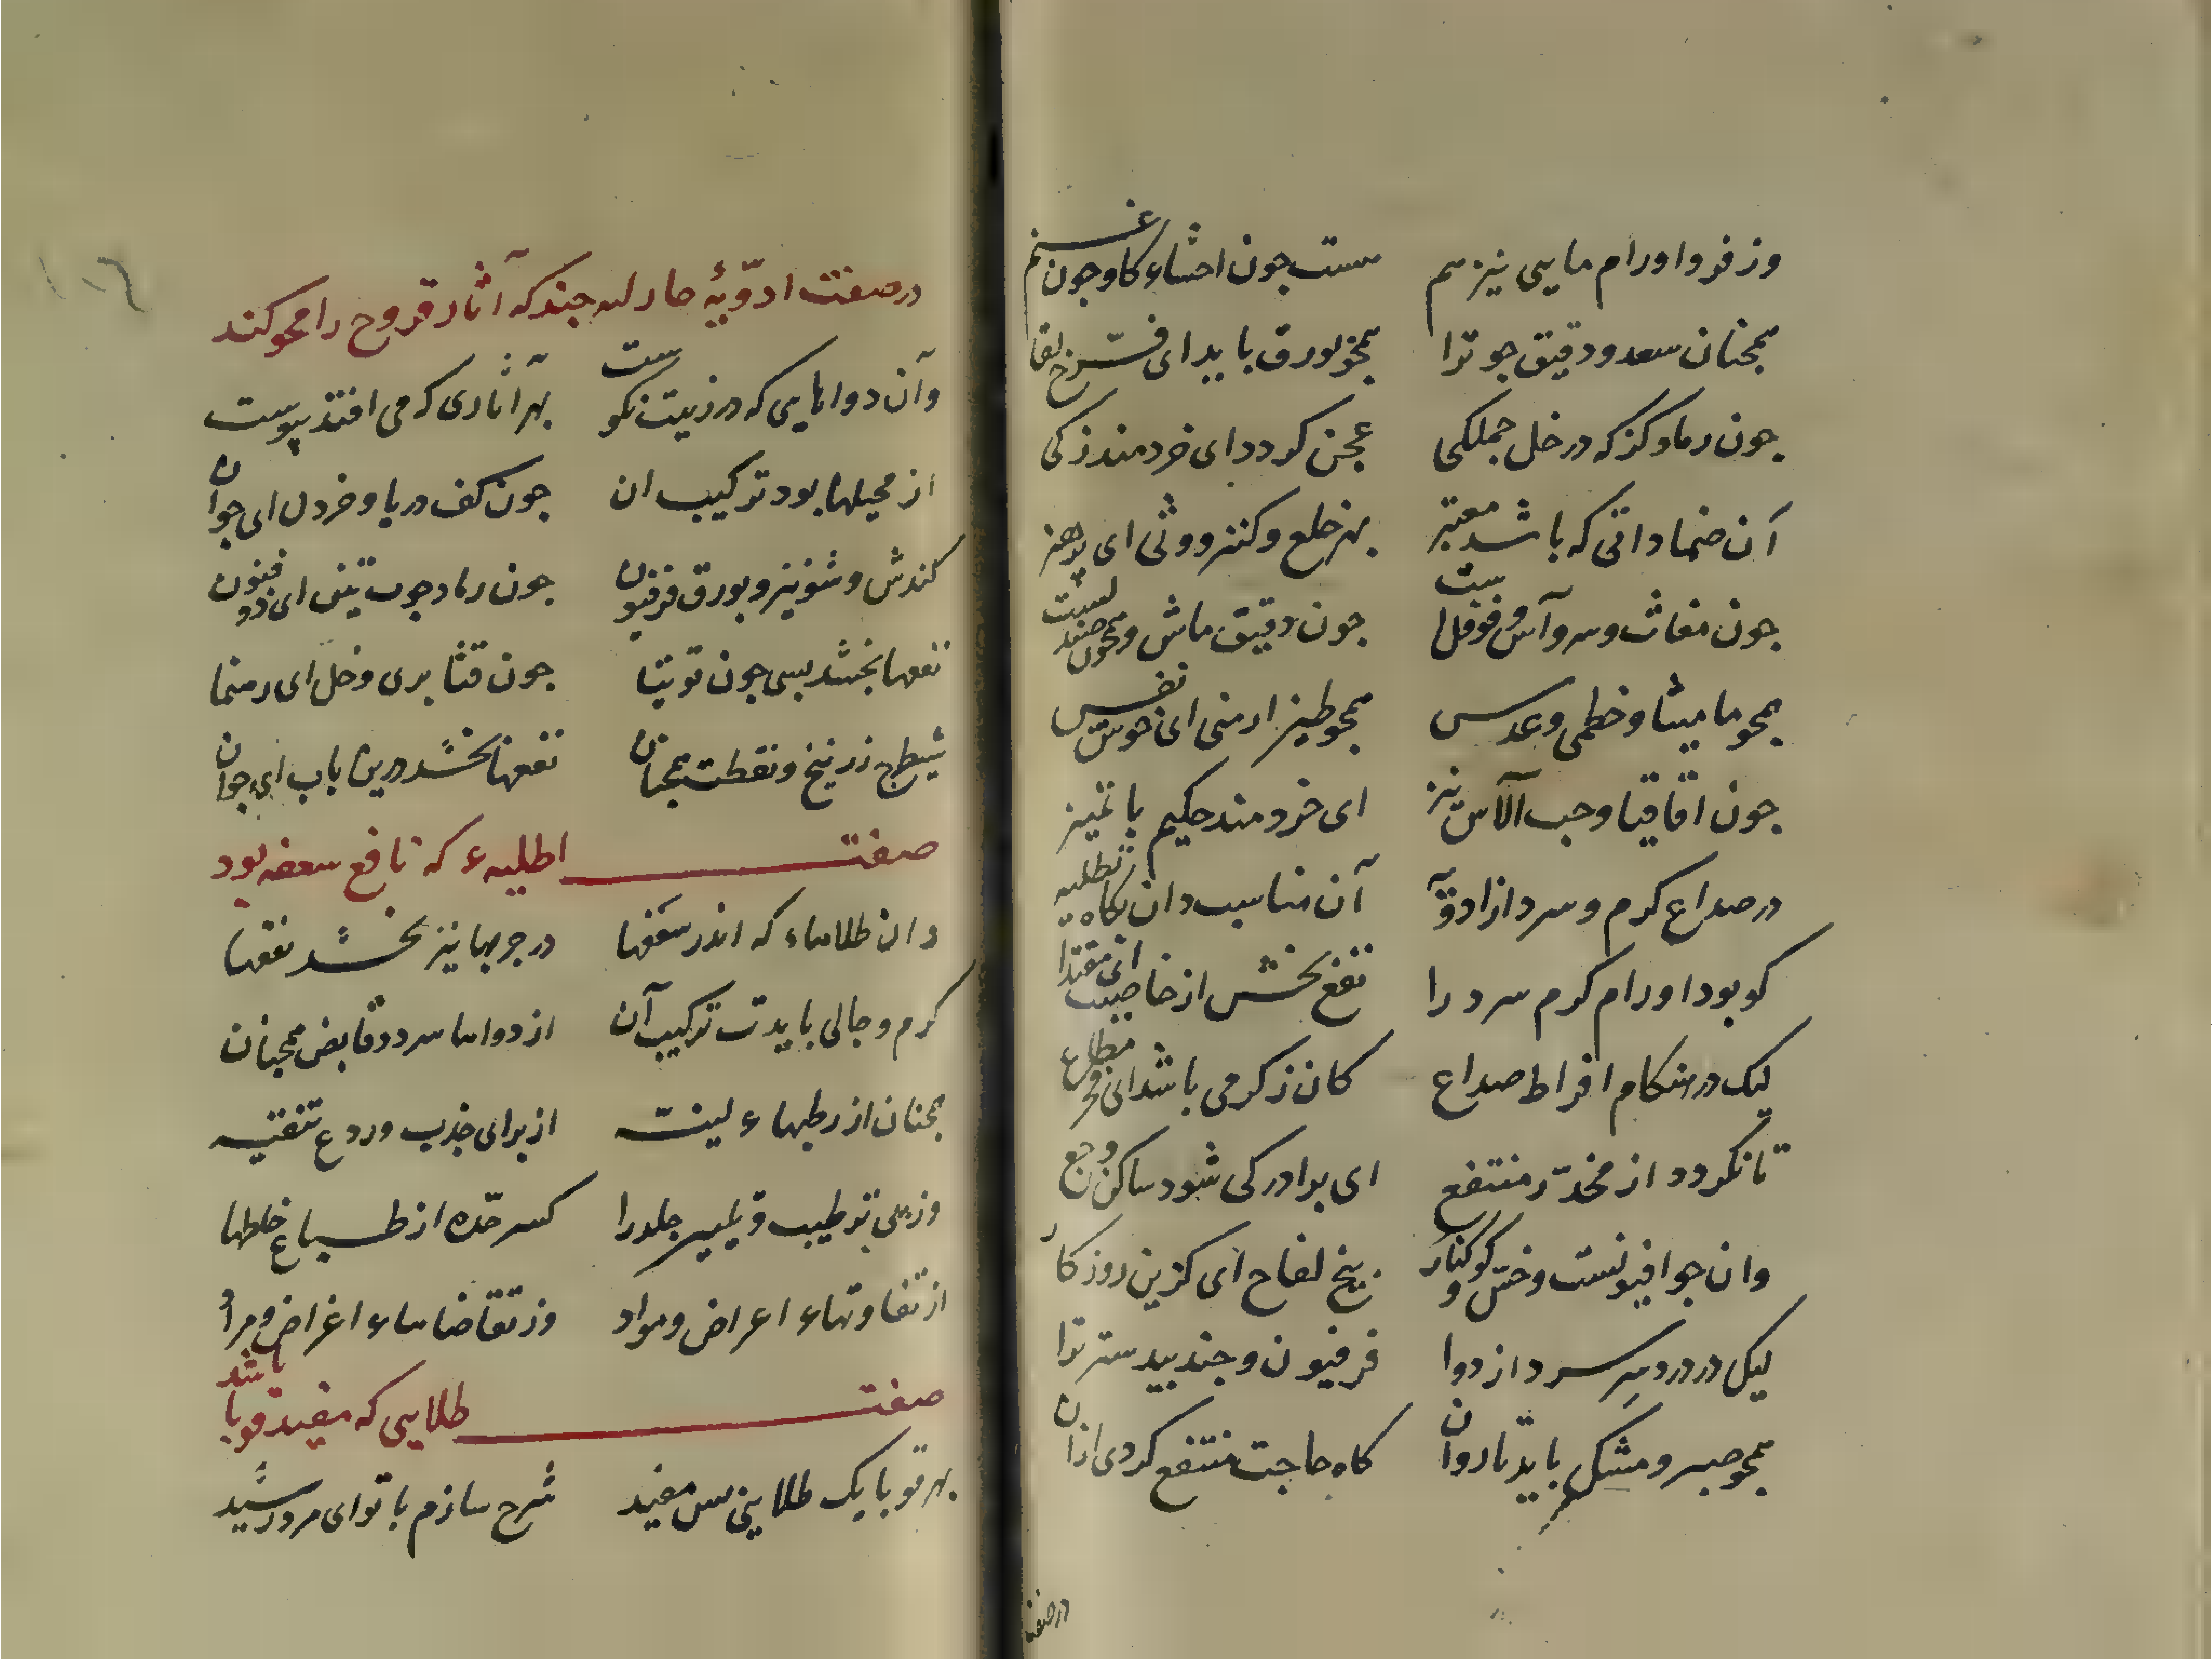 وز فروا اورام مایی نیز هم هست جون احشاء کاو وجون غنم
همجنان سعد و دقیق جو ترا همجو بورق باید ای فرّخ لقا
جون رماد کز که در خل جملکی عجن کردد ای خردمند زکی
آن ضماداتی که باشد معتبر بهر خلع و کسر و وثی ای پر هنر
جون مغاث و سرو و آس و فوفلست جون دقیق ماش و همجون صندلست
همجو مامیثا و خطمی و عدس همجو طین ارمنی ای خوش نفس
جون اقاقیا و حب الآس نیز ای خردمند حکیم با تمیز
در صداع کرم و سرد از ادویه آن مناسب دان بکاه تطلیه
کو بود اورام کرم سرد را نفع بخش از خاصیت ای مقتدا
لیک در هنکام افراط صداع کان ز کرمی باشد ای فخر مطاع
تا نکردد از مخدّر منتفع ای برادر کی شود ساکن وجع
وان جو افیونست و خس و کوکنار بیخ لفاح ای کزین روزکار
لیک در درد سر سرد از دوا فرفیون و جندبیدستر ترا
همجو صبر و مشک باید تا روان کاه حاجت منتفع کردی ازان
در صفت
در صفت ادویهٔ جند که آثار قروح را محو کند
وآن دواهایی که در زینت نکوست بهر آثاری که می افتد بپوست
از محیلها بود ترکیب ان جون کف دریا و خردل ای جوان
کندش و شونیز و بورق فرفیون جون رماد جوب تین ای ذو فنون
نفعها بخشد بسی جون توتیا جون قثا بری و خل ای رهنما
شیطرج زرنیخ و نفطت همجنان نفعها بخشد درین باب ای جوان
صفت اطلیهء که نافع سعفه بود
دان طلاهاء که اندر سعفها در جربها نیز بخشد نفعها
کرم و جالی بایدت ترکیب آن از دواها سرد و قابض همجنان
همجنان از رطبهاء لینت از برای جذب و ردع تنقیه
وز پی ترطیب و تلیین جلد را کسر حدّه از طباع خلطها
از تفاوتهاء اعراض و مواد وز تقاضاهاء اغراض و مراد
صفت طلایی که مفید قوبا باشد
بهر قوبا یک طلایی بس مفید شرح سازم با تو ای مرد رشید
١٠٦